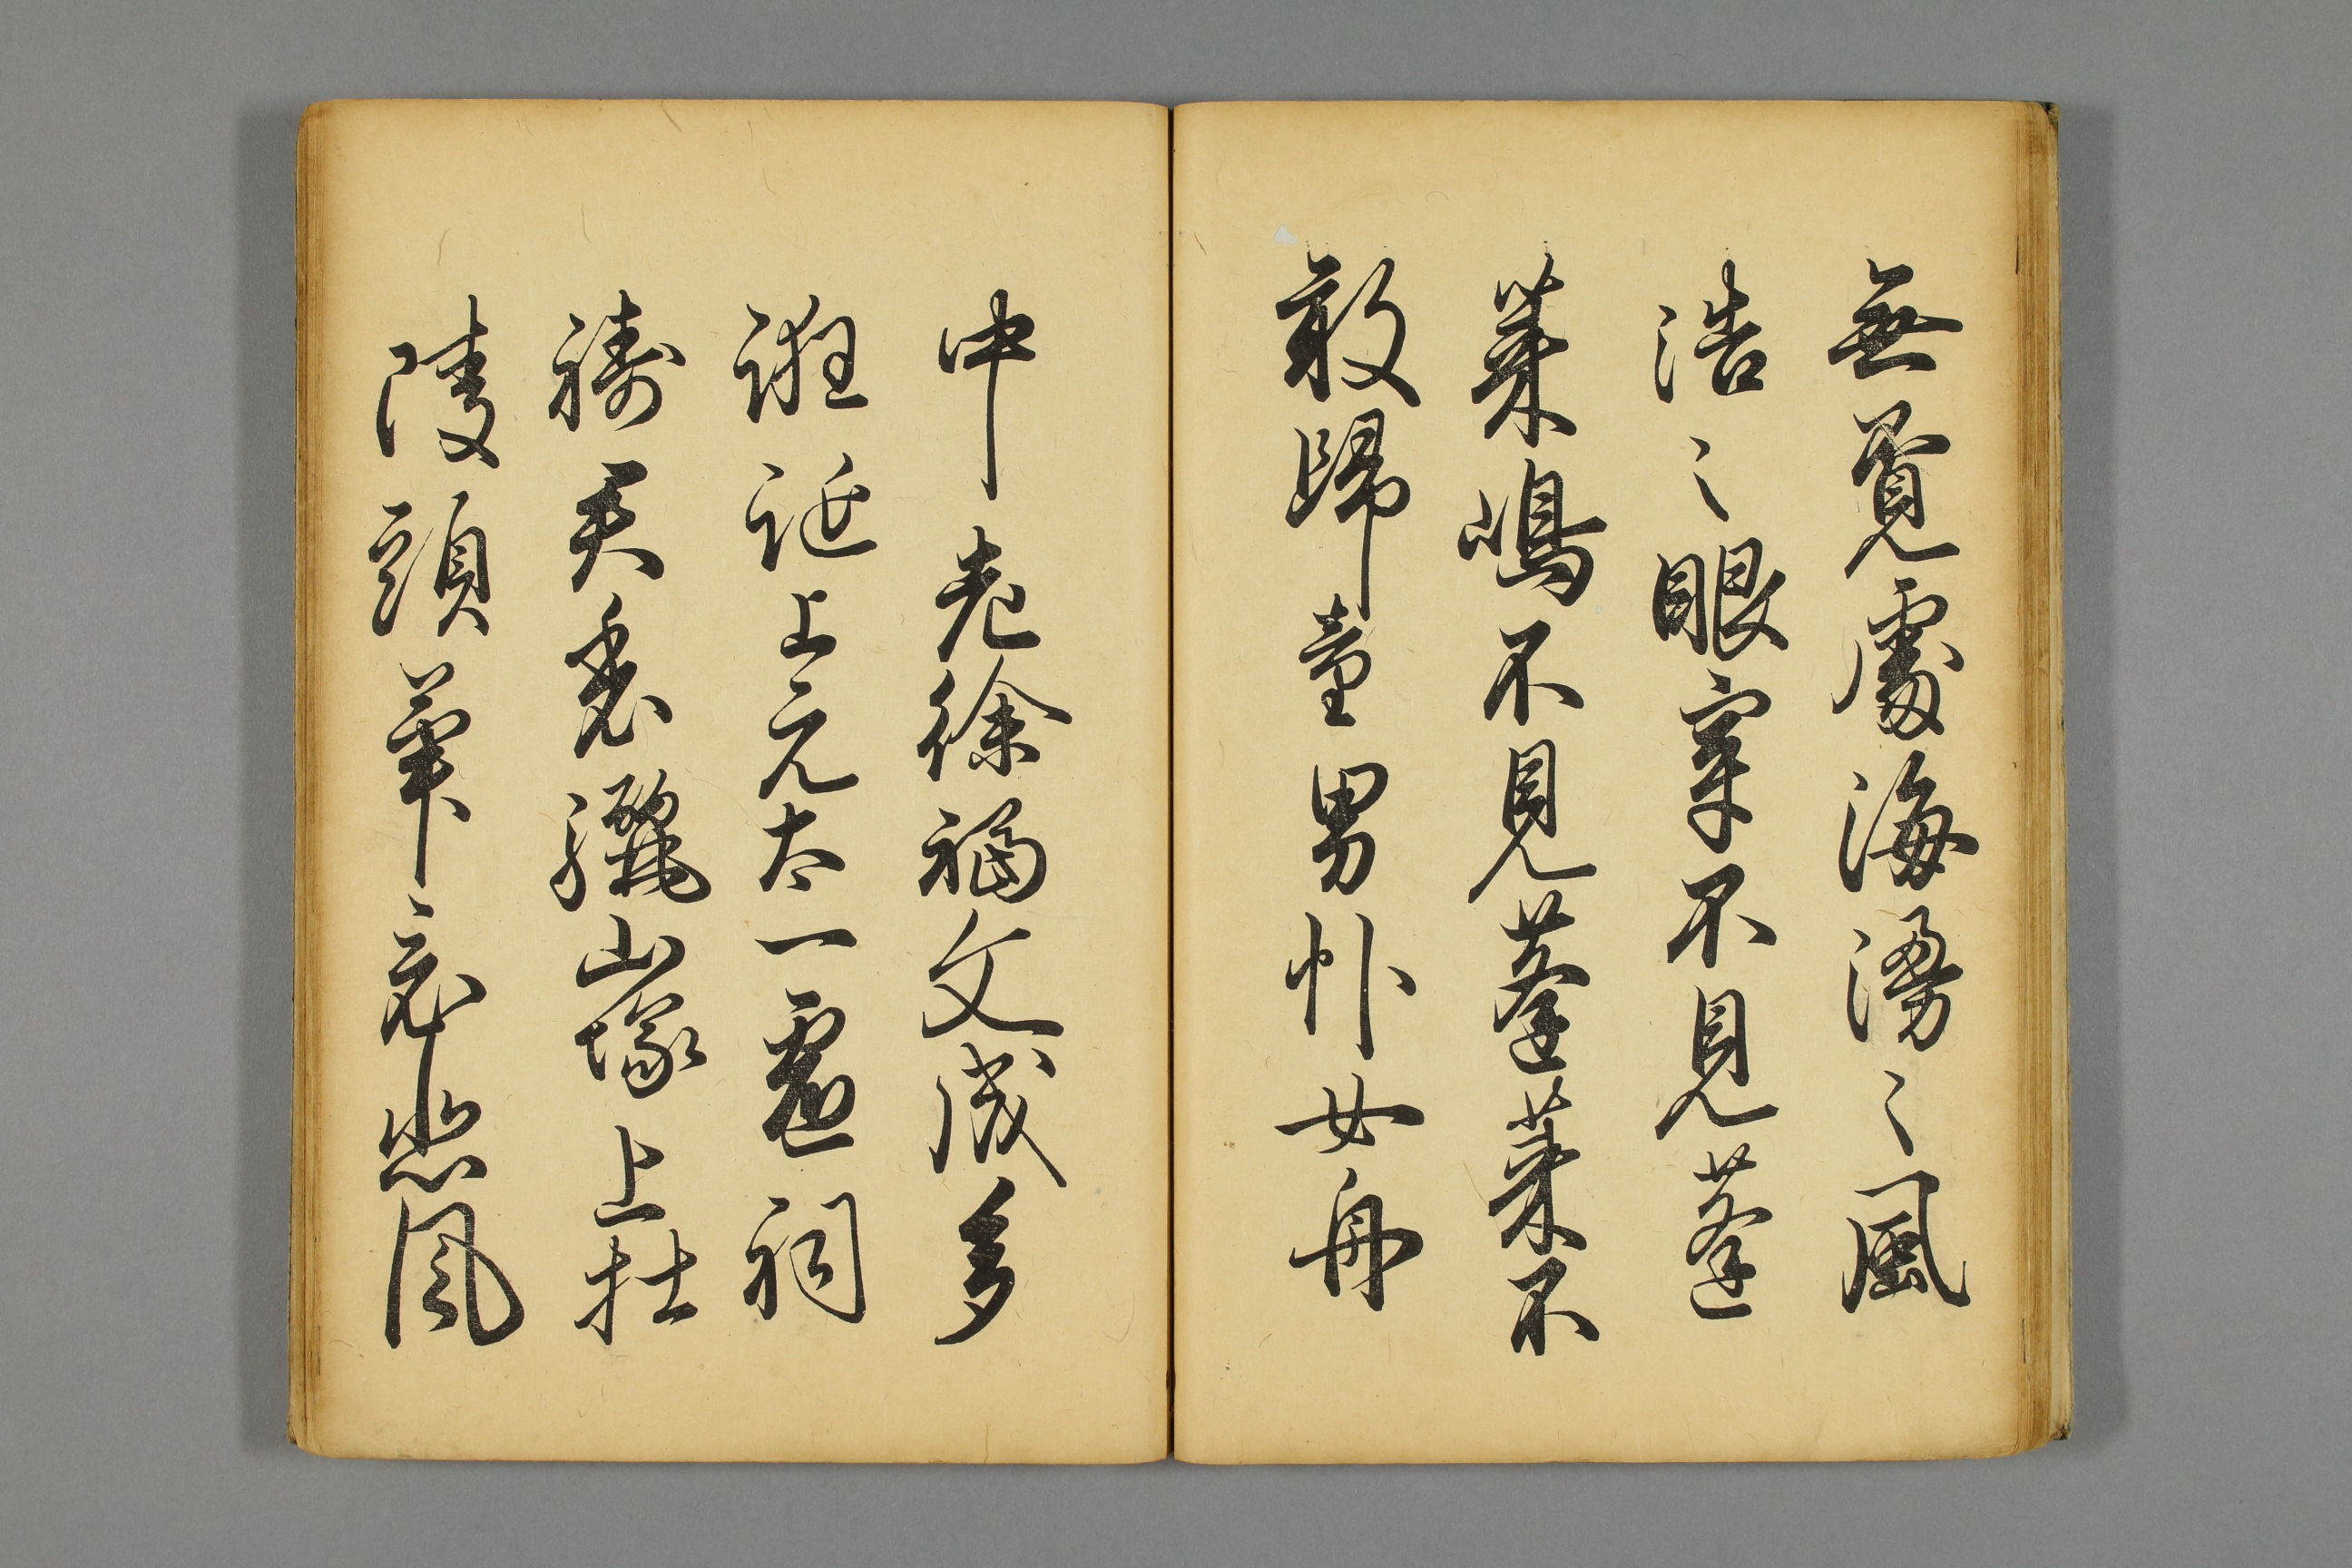 無覓處海漫〻風
浩〻眼穿不見蓬
萊嶋不見蓬萊不
敢歸童男丱女舟
中老徐福文成多
誑誕上元太一虛祠
禱君看驪山塚上杜
陵頭畢竟悲風